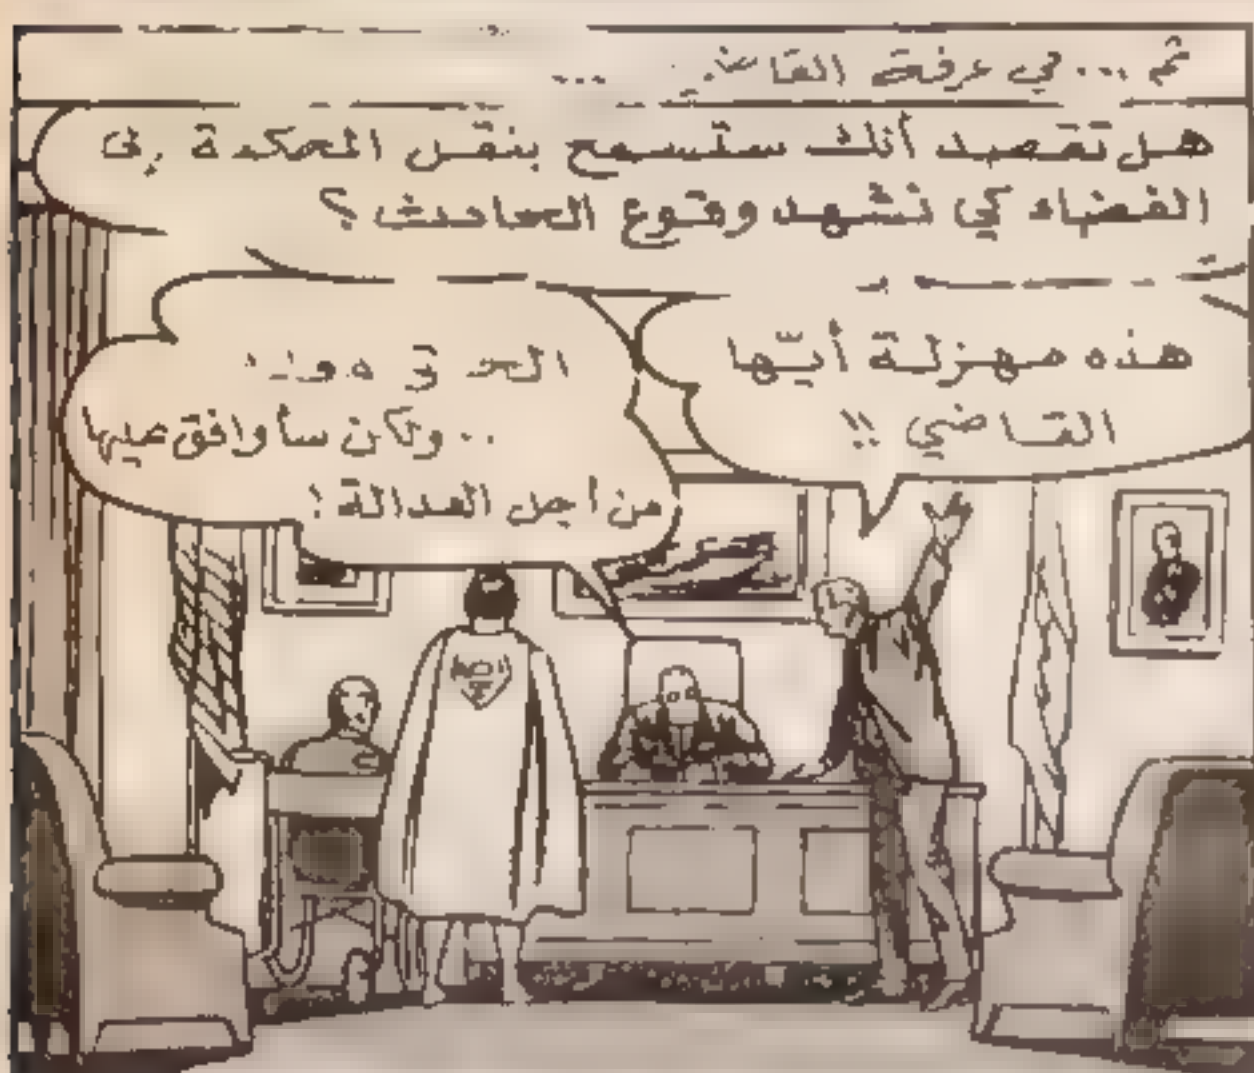 ثم ... في غرفة القاضي ...
هل تقصد أنك ستسمح بنقل المحكمة إلى
الفضاء كي نشهد وقوع الحادث ؟
هذه مهزلة أيّها
القاضي !!
.. ولكن سأوافق عليها
من أجل العدالة !